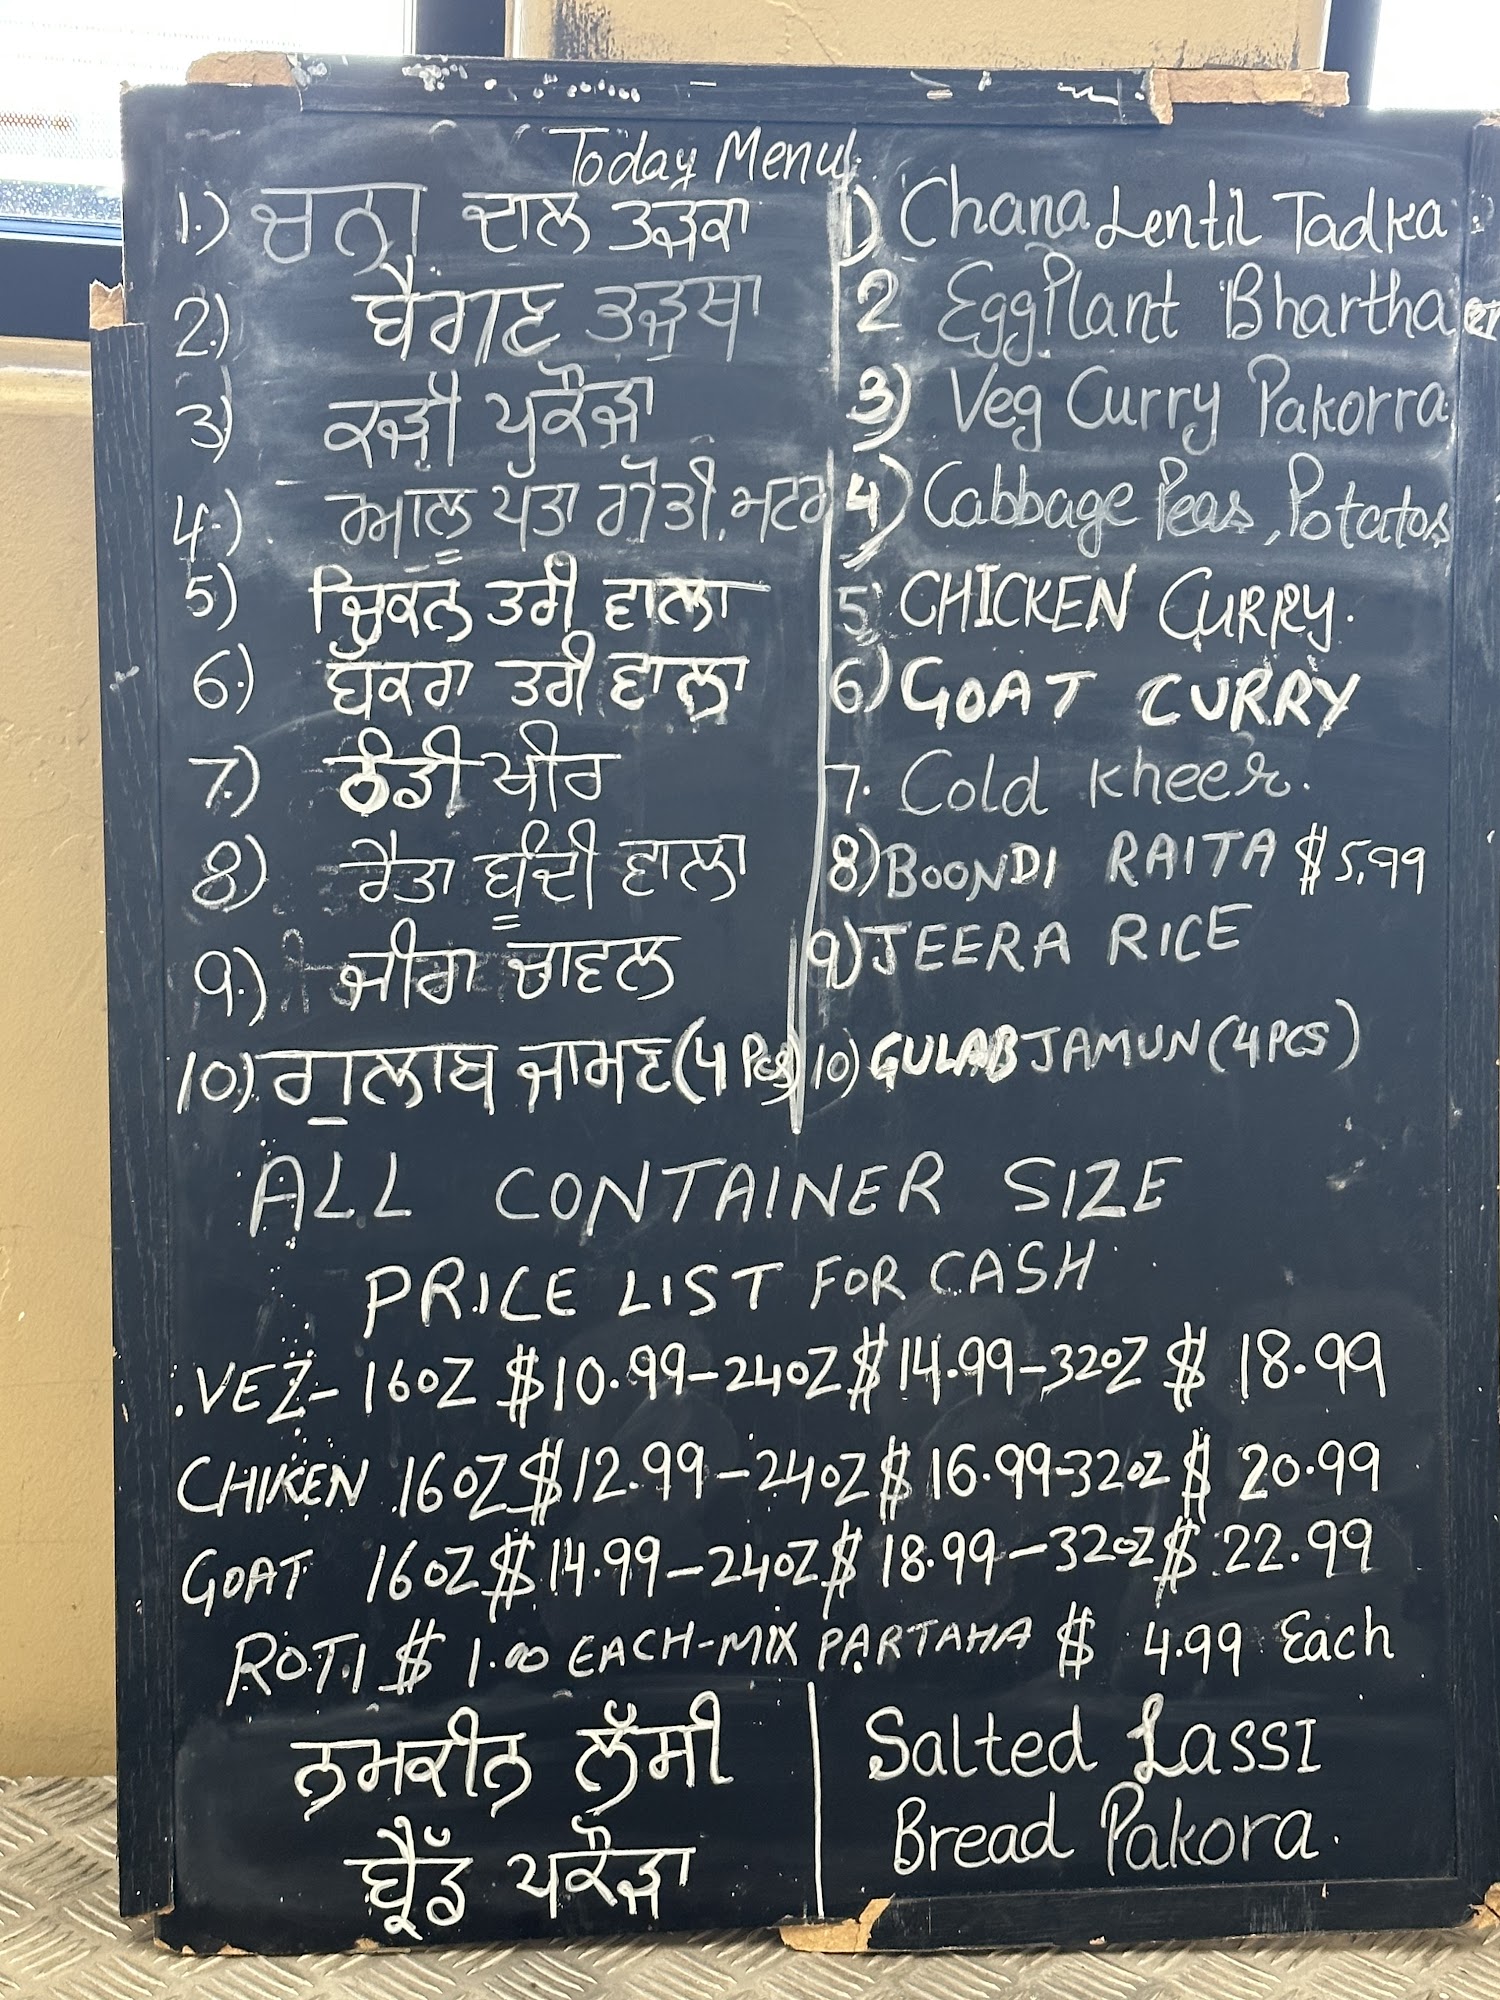 Today Menu
1.) ਚਨਾ ਦਾਲ ਤੜਕਾ
1) Chana Lentil Tadka
2.) ਬੈਗਣ ਭੜਥਾ
2 EggPlant Bhartha
3) ਕੜੀ ਪਕੌੜਾ
3) Veg Curry Pakorra
4.) ਆਲੂ ਪੱਤਾ ਗੋਭੀ, ਮਟਰ
4) Cabbage Peas, Potatos
5) ਚਿਕਨ ਤਰੀ ਵਾਲਾ
5 CHICKEN CURRY.
6.) ਬੱਕਰਾ ਤਰੀ ਵਾਲਾ
6) GOAT CURRY
7.) ਠੰਡੀ ਖੀਰ
7. Cold Kheer.
8) ਰੈਤਾ ਬੂੰਦੀ ਵਾਲਾ
8) BOONDI RAITA $5.99
9.) ਜੀਰਾ ਚਾਵਲ
9) JEERA RICE
10) ਗੁਲਾਬ ਜਾਮਣ (4 Pcs)
10) GULAB JAMUN (4 PCS)
ALL CONTAINER SIZE
PRICE LIST FOR CASH
VEZ- 16OZ $10.99-24OZ $14.99-32OZ $ 18.99
CHIKEN 16OZ $12.99-24OZ $16.99-32OZ $ 20.99
GOAT 16OZ $14.99-24OZ $ 18.99-32OZ $ 22.99
ROTI $ 1.00 EACH-MIX PARTAHA $ 4.99 Each
ਨਮਕੀਨ ਲੱਸੀ
Salted Lassi
ਬ੍ਰੈੱਡ ਪਕੌੜਾ
Bread Pakora.